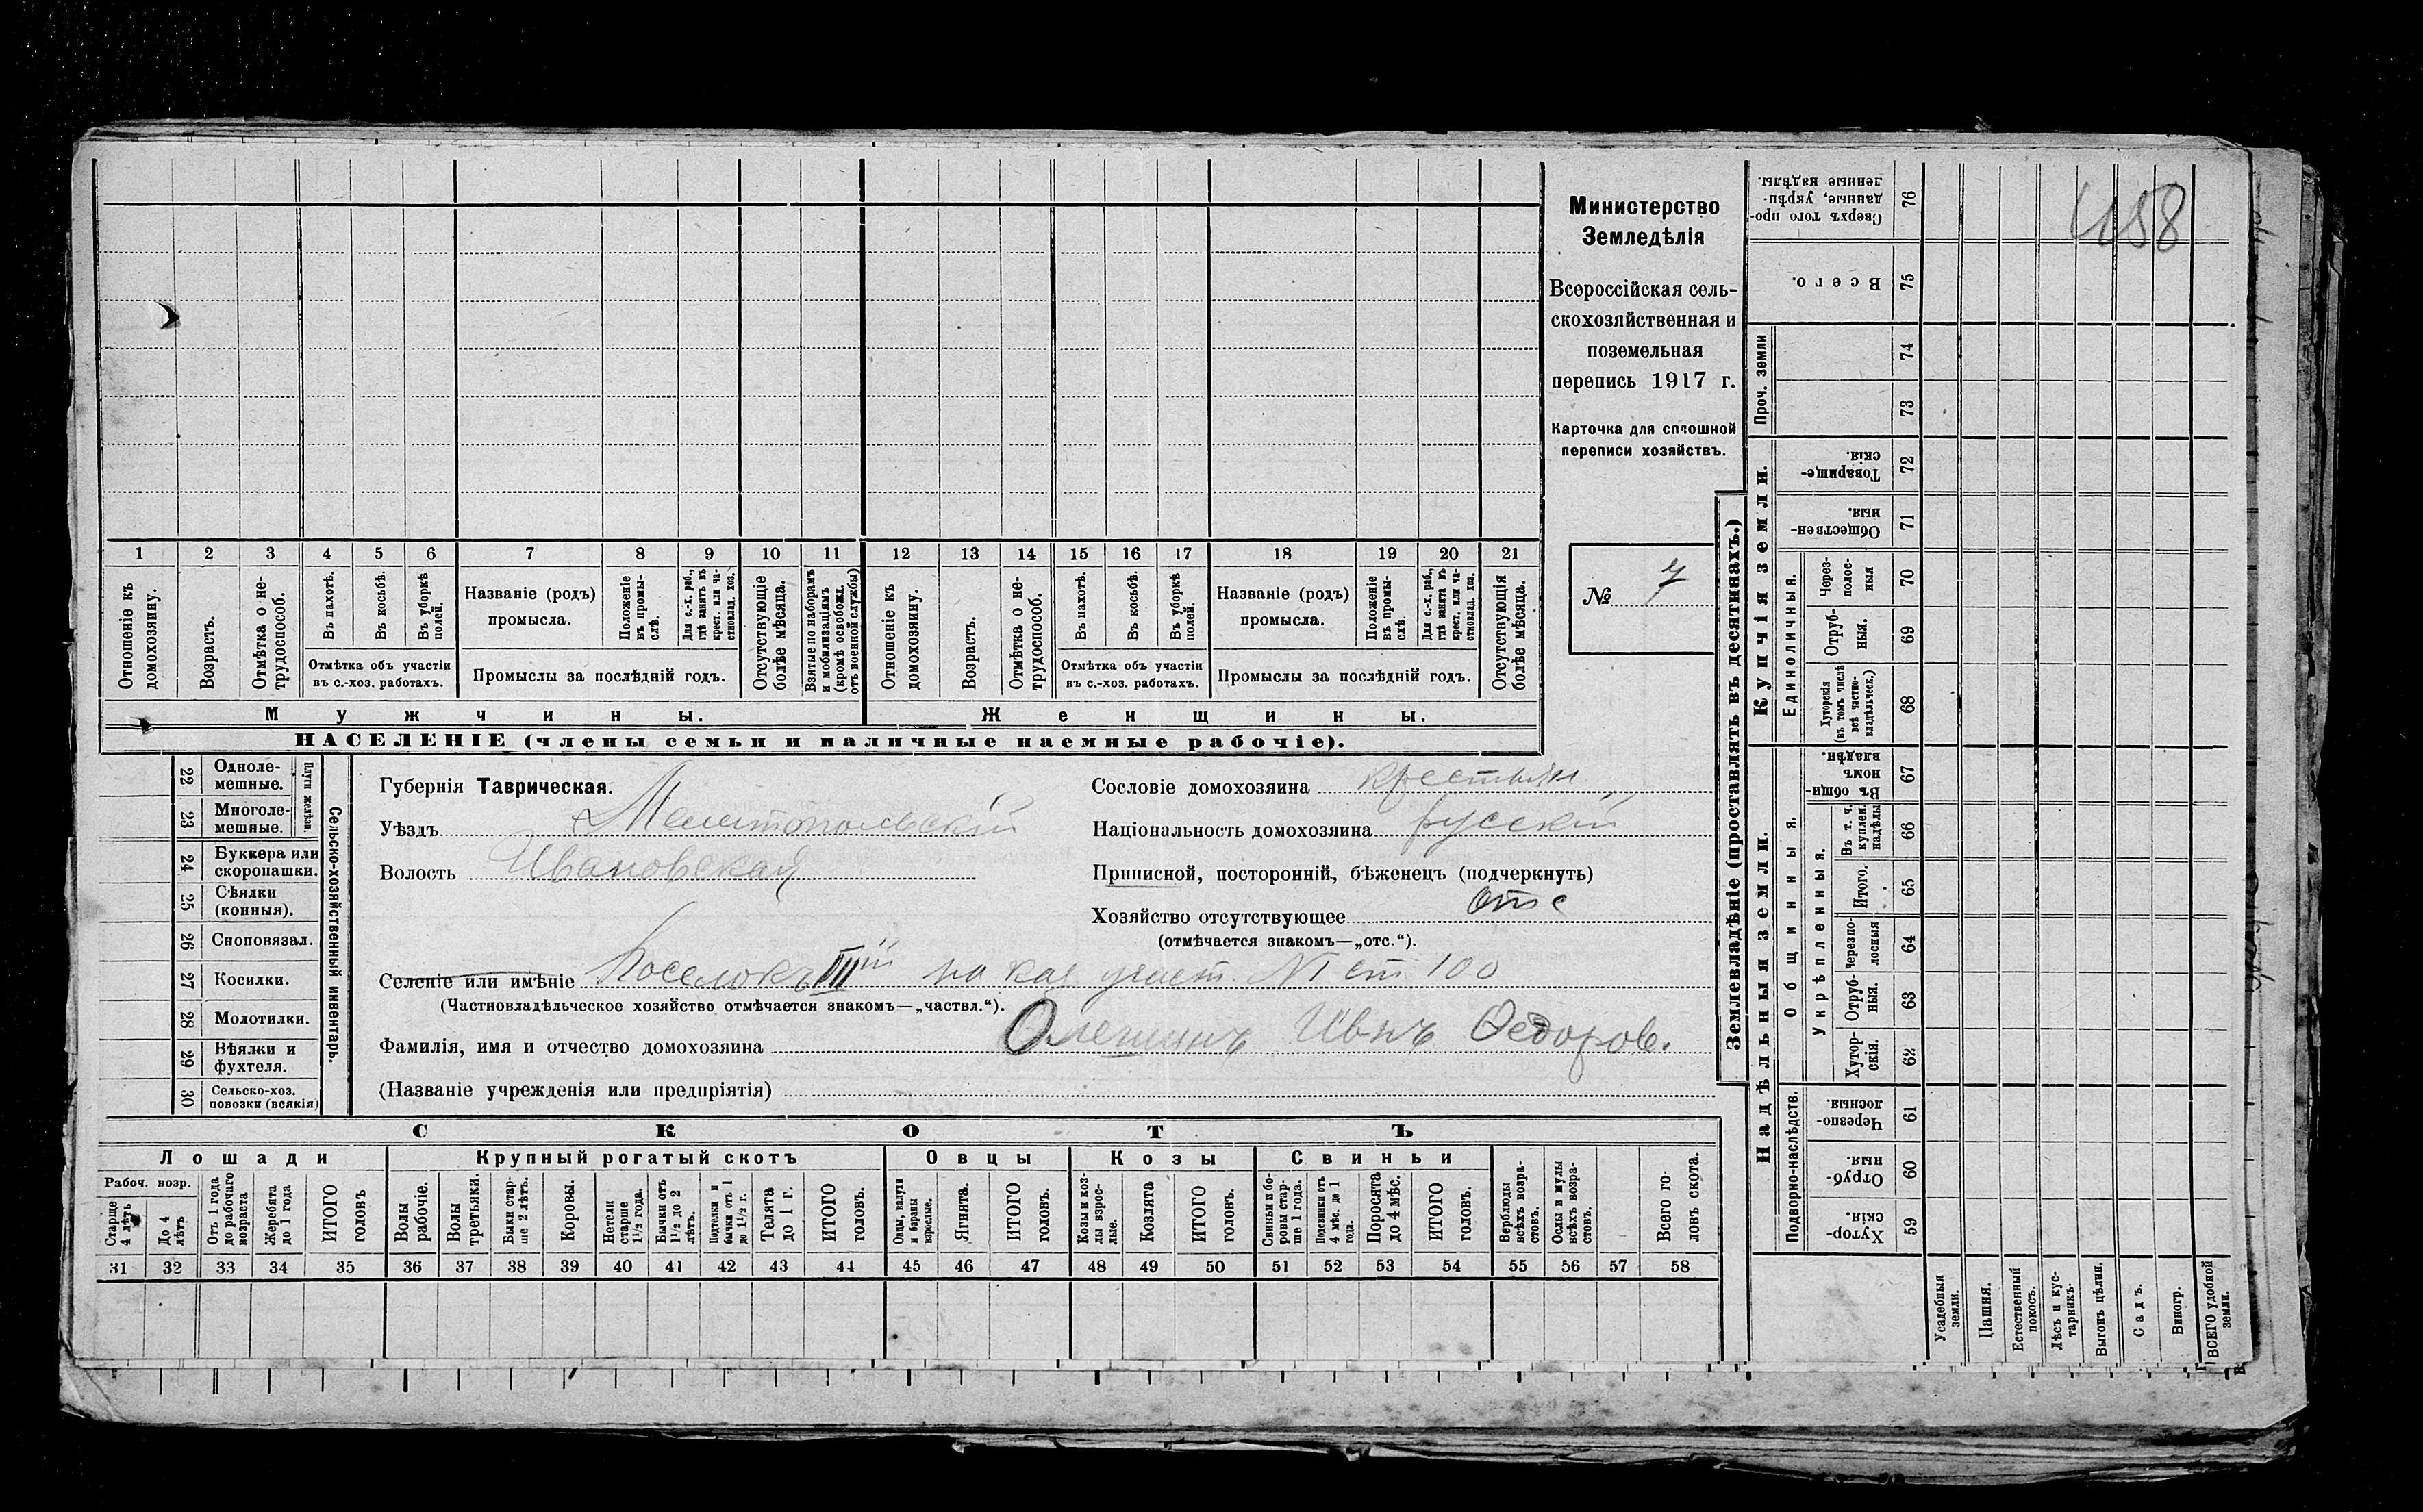 Министерство
Земледѣлія
Всероссійская сель-
скохозяйственная и
поземельная
перепись 1917 г.
Карточка для сплошной
переписи хозяйствъ.
№ 7
458
1 2 3 4 5 6 7 8 9 10 11 12 13 14 15 16 17 18 19 20 21
Отношеніе къ домохозяину.
Возрастъ.
Отмѣтка о не-трудоспособ.
Въ пахотѣ.
Въ косьбѣ.
Въ уборкѣ полей.
Отмѣтка объ участіи
въ с.-хоз. работахъ.
Названіе (родъ)
промысла.
Положеніе въ промы-слѣ.
Для с.-х. раб., гдѣ занятъ въ крест. или ча-стновлад. хоз.
Промыслы за послѣдній годъ.
Отсутствующіе болѣе мѣсяца.
Взятые по наборамъ и мобилизаціямъ (кромѣ освобожд. отъ военной службы)
Отношеніе къ домохозяину.
Возрастъ.
Отмѣтка о не-трудоспособ.
Въ пахотѣ.
Въ косьбѣ.
Въ уборкѣ полей.
Отмѣтка объ участіи
въ с.-хоз. работахъ.
Названіе (родъ)
промысла.
Положеніе въ промы-слѣ.
Для с.-х. раб., гдѣ занята въ крест. или ча-стновлад. хоз.
Промыслы за послѣдній годъ.
Отсутствующія болѣе мѣсяца.
Мужчины.
Женщины.
НАСЕЛЕНІЕ (члены семьи и наличные наемные рабочіе).
Сельско-хозяйственный инвентарь.
Плуги желѣзн.
22 Одноле-
мешные.
23 Многоле-
мешные.
24 Буккера или
скоропашки.
25 Сѣялки
(конныя).
26 Сноповязал.
27 Косилки.
28 Молотилки.
29 Вѣялки и
фухтеля.
30 Сельско-хоз.
повозки (всякія)
Губернія Таврическая.
Уѣздъ Мелитопольскій
Волость Ивановская
Сословіе домохозяина крестьян
Національность домохозяина русскій
Приписной, посторонній, бѣженецъ (подчеркнуть)
Хозяйство отсутствующее отс
(отмѣчается знакомъ—„отс.“).
Селеніе или имѣніе Поселокъ IIIій на каз. участ. №1 ст 100
(Частновладѣльческое хозяйство отмѣчается знакомъ—„частвл.“).
Фамилія, имя и отчество домохозяина Олешинъ Ивнъ Ѳедоров.
(Названіе учрежденія или предпріятія)
СКОТЪ
Лошади
Крупный рогатый скотъ
Овцы
Козы
Свиньи
Рабоч. возр.
Старше 4 лѣтъ
До 4 лѣтъ
Отъ 1 года до рабочаго возраста
Жеребята до 1 года
ИТОГО головъ
Волы рабочіе.
Волы третьяки.
Быки стар-ше 2 лѣтъ.
Коровы.
Нетели старше 1½ года.
Бычки отъ 1½ до 2 лѣтъ.
Подтелки и бычки отъ 1 до 1½ г.
Телята до 1 г.
ИТОГО головъ.
Овцы, валухи и бараны взрослые.
Ягнята.
ИТОГО головъ.
Козы и коз-лы взрос-лые.
Козлята
ИТОГО головъ.
Свиньи и бо-ровы стар-ше 1 года.
Подсвинки отъ 4 мѣс. до 1 года.
Поросята до 4 мѣс.
ИТОГО головъ.
Верблюды всѣхъ возра-стовъ.
Ослы и мулы всѣхъ возра-стовъ.
Всего го-ловъ скота.
31 32 33 34 35 36 37 38 39 40 41 42 43 44 45 46 47 48 49 50 51 52 53 54 55 56 57 58
Землевладѣніе (проставлять въ десятинахъ.)
Купчія земли.
Надѣльныя земли.
Сверхъ того про-данные, укрѣп-ленные надѣлы. 76
Всего. 75
Проч. земли
74
73
Товарище-скія. 72
Обществен-ныя. 71
Единоличныя.
Через-полос-ныя 70
Отруб-ныя. 69
Хуторскія (въ томъ числѣ всѣ частно-владѣльческ.) 68
Общинныя.
Въ общи-номъ владѣн. 67
Укрѣпленныя.
Въ т. ч. куплен. надѣлы 66
Итого. 65
Черезпо-лосныя 64
Отруб-ныя. 63
Хутор-скія. 62
Подворно-наслѣдств.
Черезпо-лосныя. 61
Отруб-ныя. 60
Хутор-скія. 59
Усадебныя земли.
Пашня.
Естественный покосъ.
Лѣсъ и кус-тарникъ.
Выгонъ цѣлин.
Садъ.
Виногр.
ВСЕГО удобной земли.